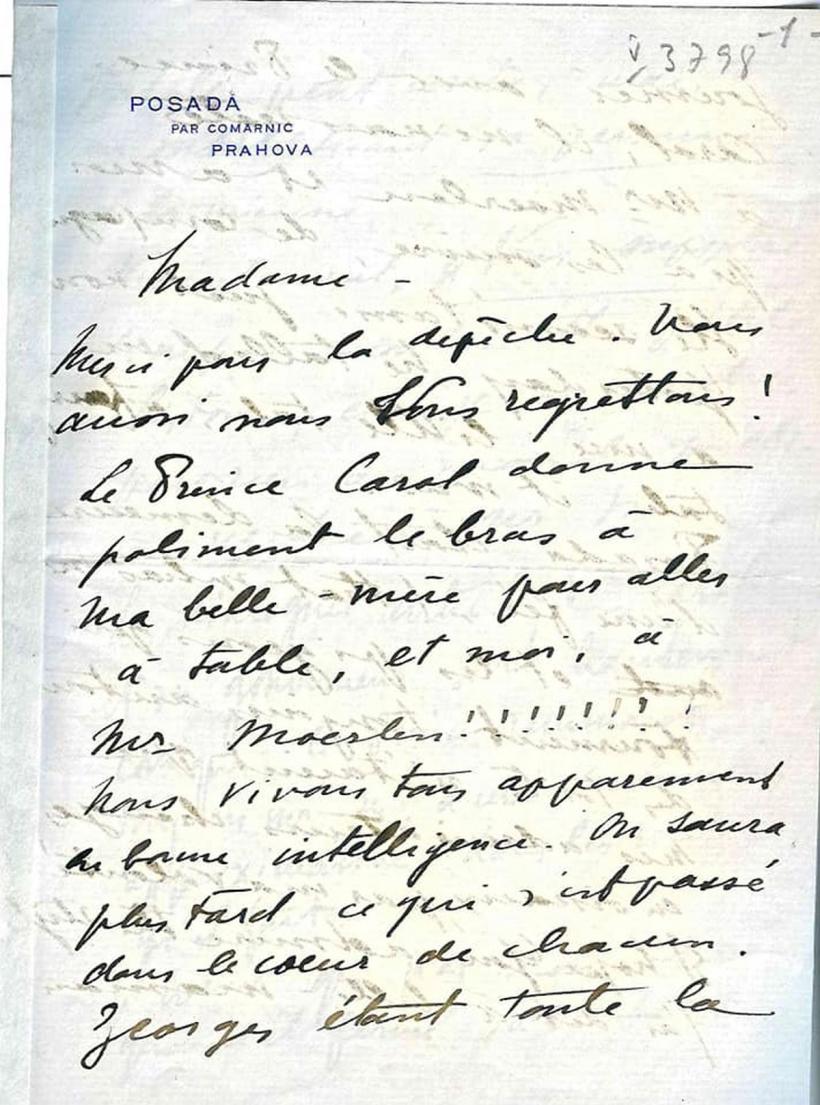 3798 -1-
POSADA
PAR COMARNIC
PRAHOVA
Madame -
Merci pour la depêche. Vous
aussi nous Vous regrettons!
Le Prince Carol donne
poliment le bras à
ma belle-mère pour aller
à table, et moi, à
Mr Moerlen!!!!!!!!
Nous vivons tous apparement
en bonne intelligence. On saura
plus tard ce qui s'est passé
dans le coeur de chacun.
Georges étant toute la